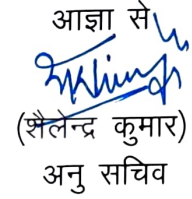 आज्ञा से
(शैलेन्द्र कुमार)
अनु सचिव